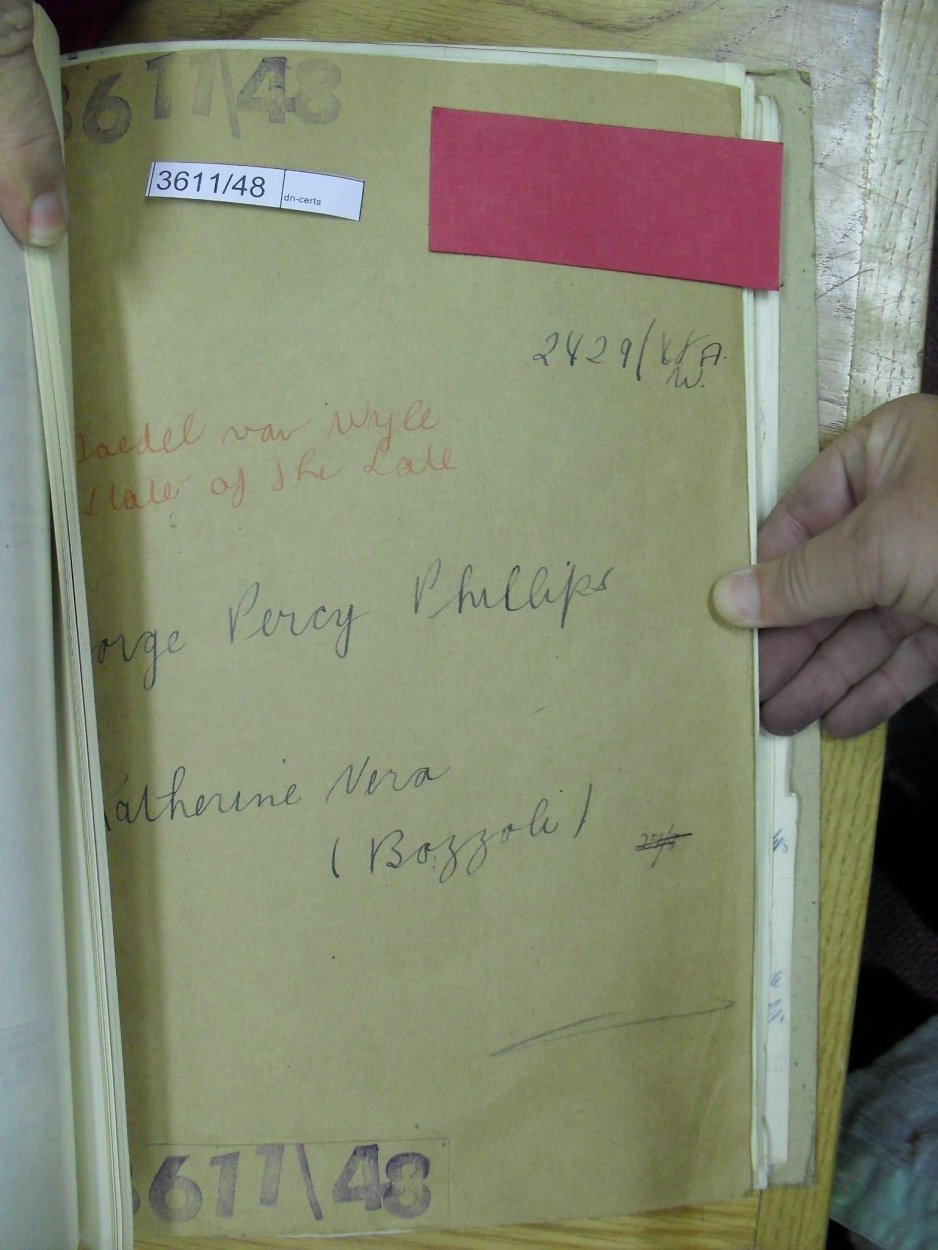 3611/48
3611/48
dn-certs
2429/48 A.
W.
Boedel van Wyle
Estate of the Late
orge Percy Phillips
Katherine Vera
(Bozzoli)
3611/48